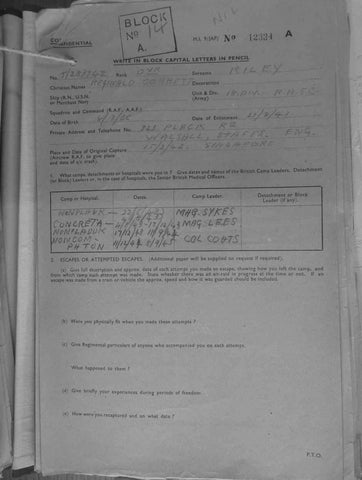 BLOCK
No 14
A.
NIL
CONFIDENTIAL
M.I. 9/JAP/ No 12334 A
WRITE IN BLOCK CAPITAL LETTERS IN PENCIL
No. Rank DVR Surname RILEY
Christian Names REGINALD Decorations
Ship (R.N., U.S.N. or Merchant Navy) Unit & Div. (Army) 18.DIV. R.A.S.C.
Squadron and Command (R.A.F., A.A.F.)
Date of Birth Date of Enlistment
Private Address and Telephone No. BLOCK RD
WALSALL, STAFFS, ENG.
Place and Date of Original Capture 15/2/42, SINGAPORE
(Aircrew R.A.F. to give place and date of w/c also)
1. What camps, detachments or hospitals were you in? Give dates and names of the British Camp Leaders, Detachment (or Block) Leaders or, in the case of hospitals, the Senior British Medical Officers.
Camp or Hospital. Dates. Camp Leader. Detachment or Block Leader (if any).
NONPLADUK MAJ. SYKES
CONCRETA MAJ. LEES
NONPLADUK
NONCOM-PHTON COL COATS
2. ESCAPES OR ATTEMPTED ESCAPES. (Additional paper will be supplied on request if required).
(a) Give full description and approx. date of each attempt you made to escape, showing how you left the camp, and from which camp such attempt was made. State whether there was an air-raid in progress at the time or not. If an escape was made from a train or vehicle the approx. speed and how it was guarded should be included.
(b) Were you physically fit when you made these attempts?
(c) Give Regimental particulars of anyone who accompanied you on each attempt.
What happened to them?
(d) Give briefly your experiences during periods of freedom.
(e) How were you recaptured and on what date?
P.T.O.